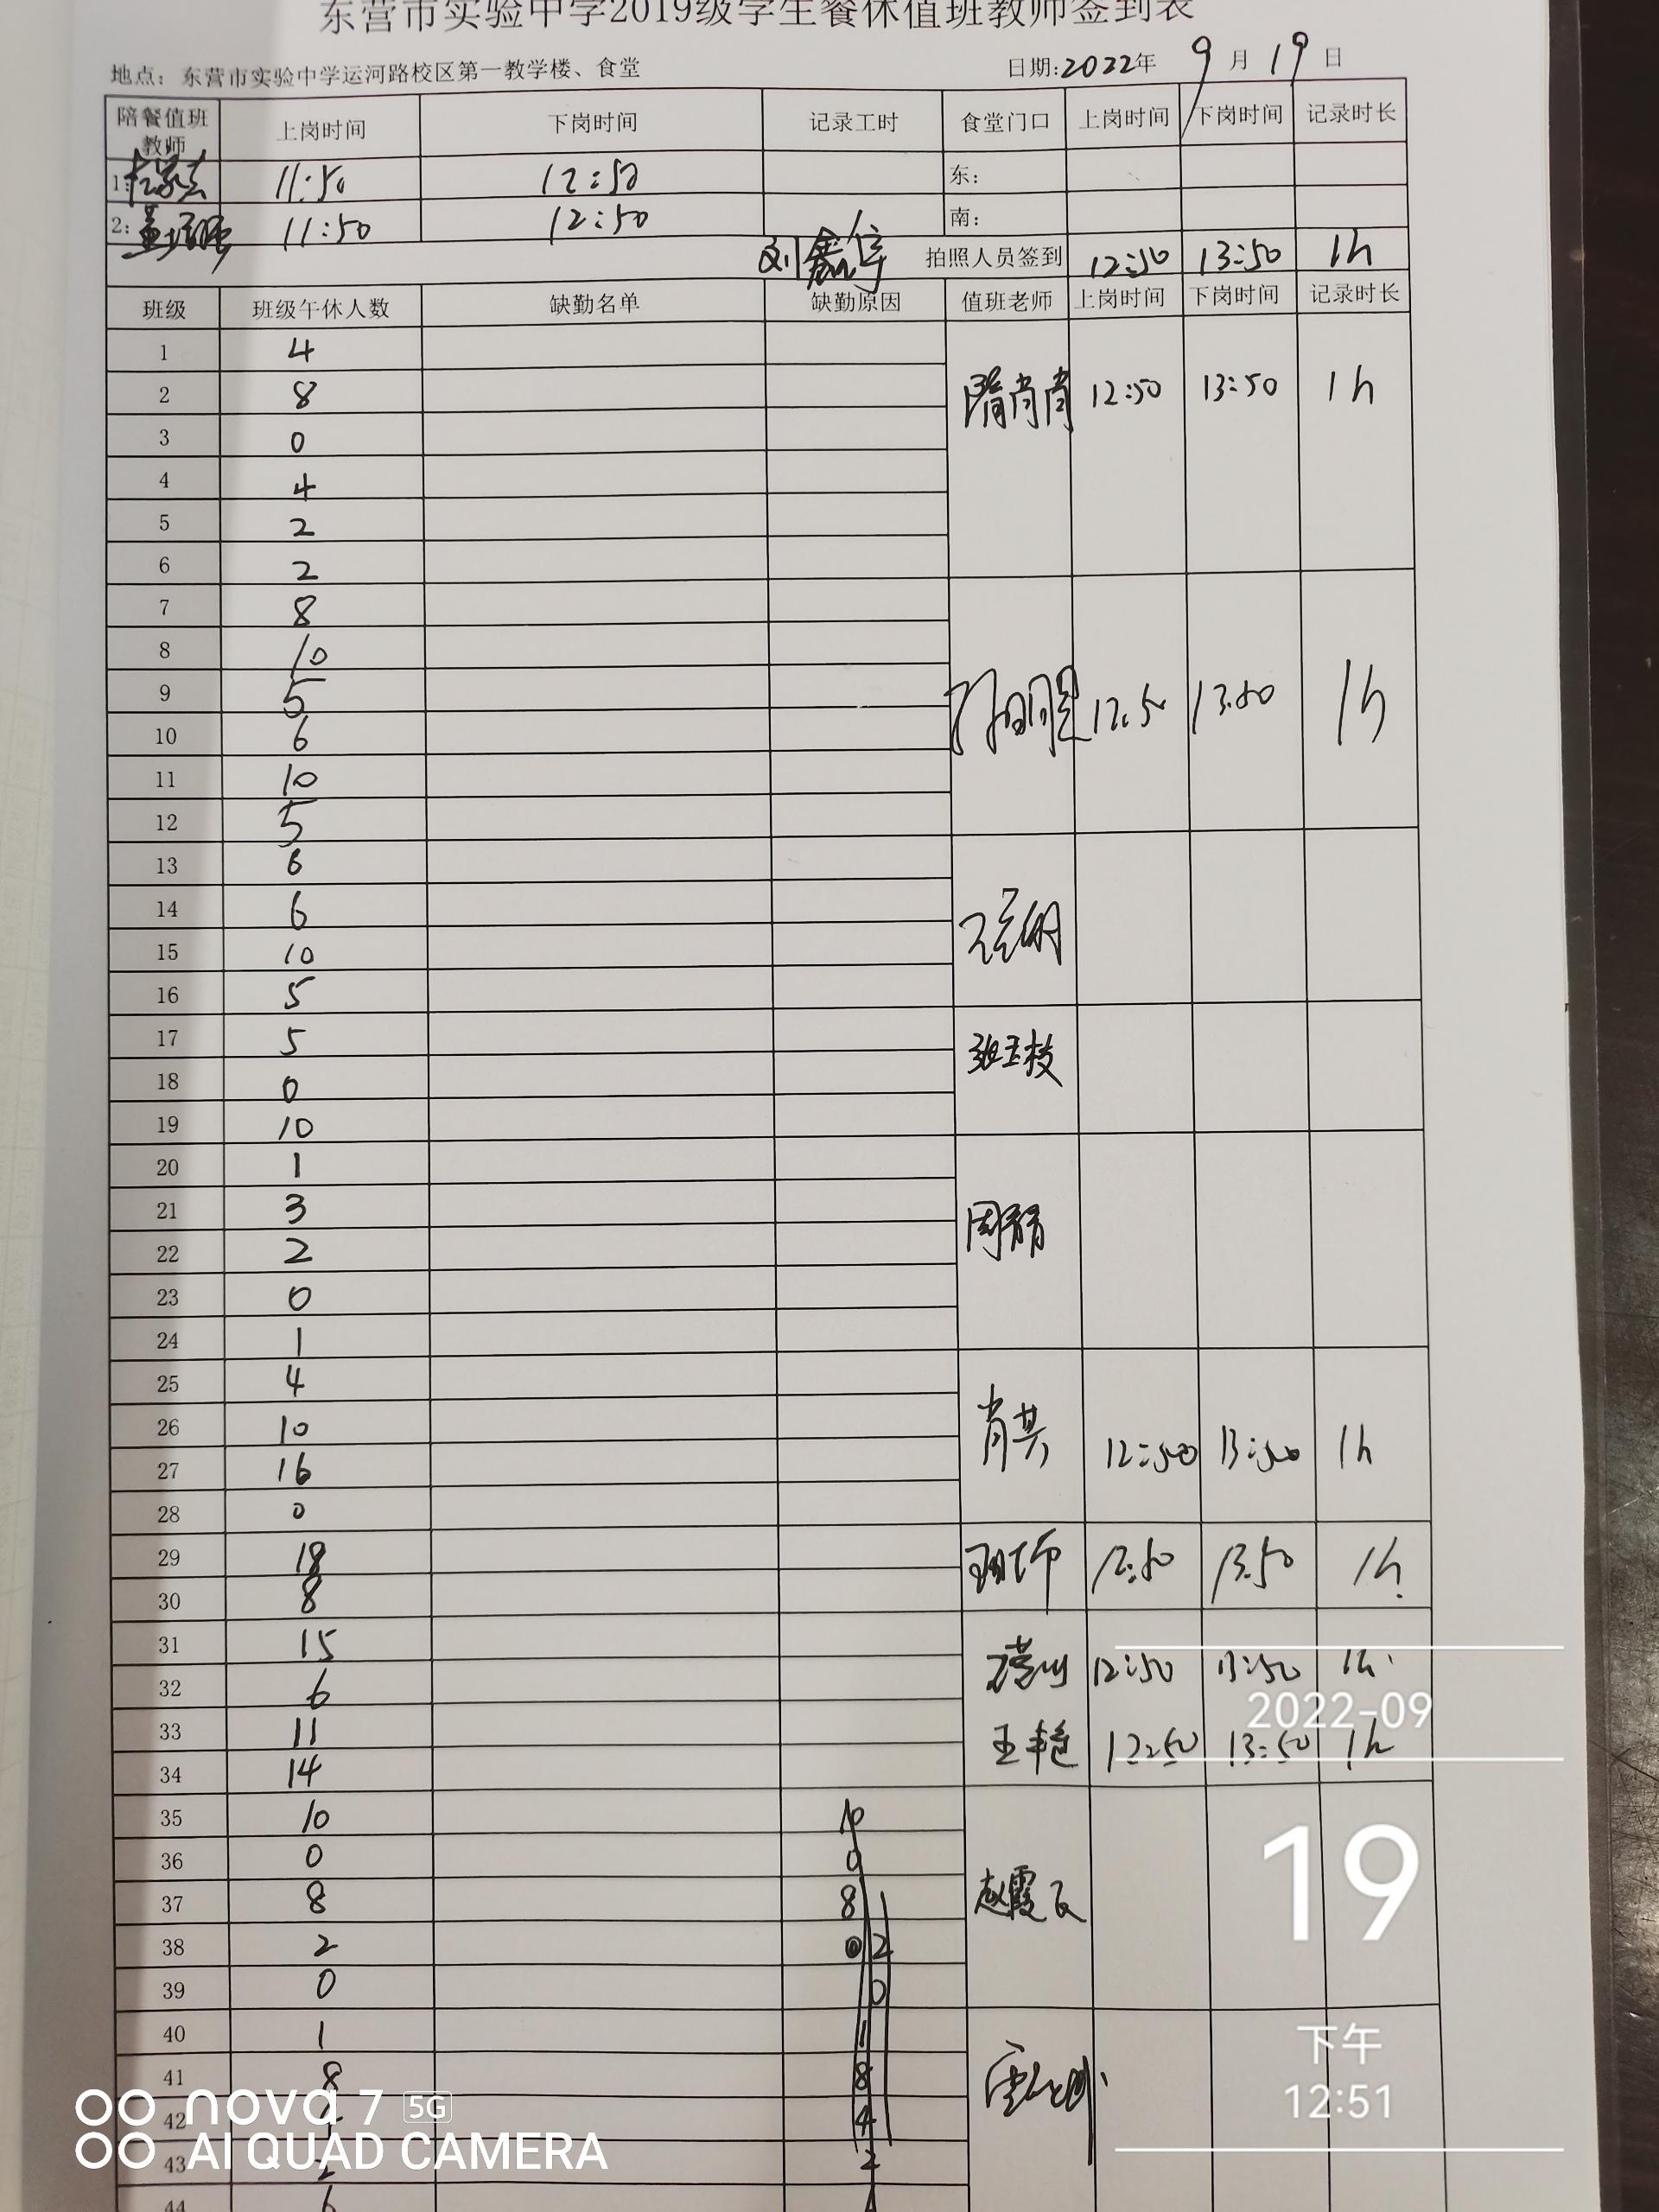 东营市实验中学2019级学生餐休值班教师签到表
地点：东营市实验中学运河路校区第一教学楼、食堂 日期:2022年 9月19日
陪餐值班教师 上岗时间 下岗时间 记录工时 食堂门口 上岗时间 下岗时间 记录时长
1: 11:50 12:50 东:
2: 11:50 12:50 南:
刘鑫宇 拍照人员签到 12:50 13:50 1h
班级 班级午休人数 缺勤名单 缺勤原因 值班老师 上岗时间 下岗时间 记录时长
1 4
2 8 隋肖肖 12:50 13:50 1h
3 0
4 4
5 2
6 2
7 8
8 10
9 5 12:50 13:50 1h
10 6
11 10
12 5
13 6
14 6
15 10
16 5
17 5
18 0 玉枝
19 10
20 1
21 3 周静
22 2
23 0
24 1
25 4
26 10 肖 12:50 13:50 1h
27 16
28 0
29 18 12:50 13:50 1h
30 8
31 15 12:50 13:50 1h
32 6
33 11 王艳 12:50 13:50 1h
34 14
35 10 10
36 0 0
37 8 8 赵霞
38 2 0 2
39 0 0
40 1 1
41 8 8
42 4
43 2 2
44 6
2022-09
19
下午
12:51
nova 7 5G
AI QUAD CAMERA